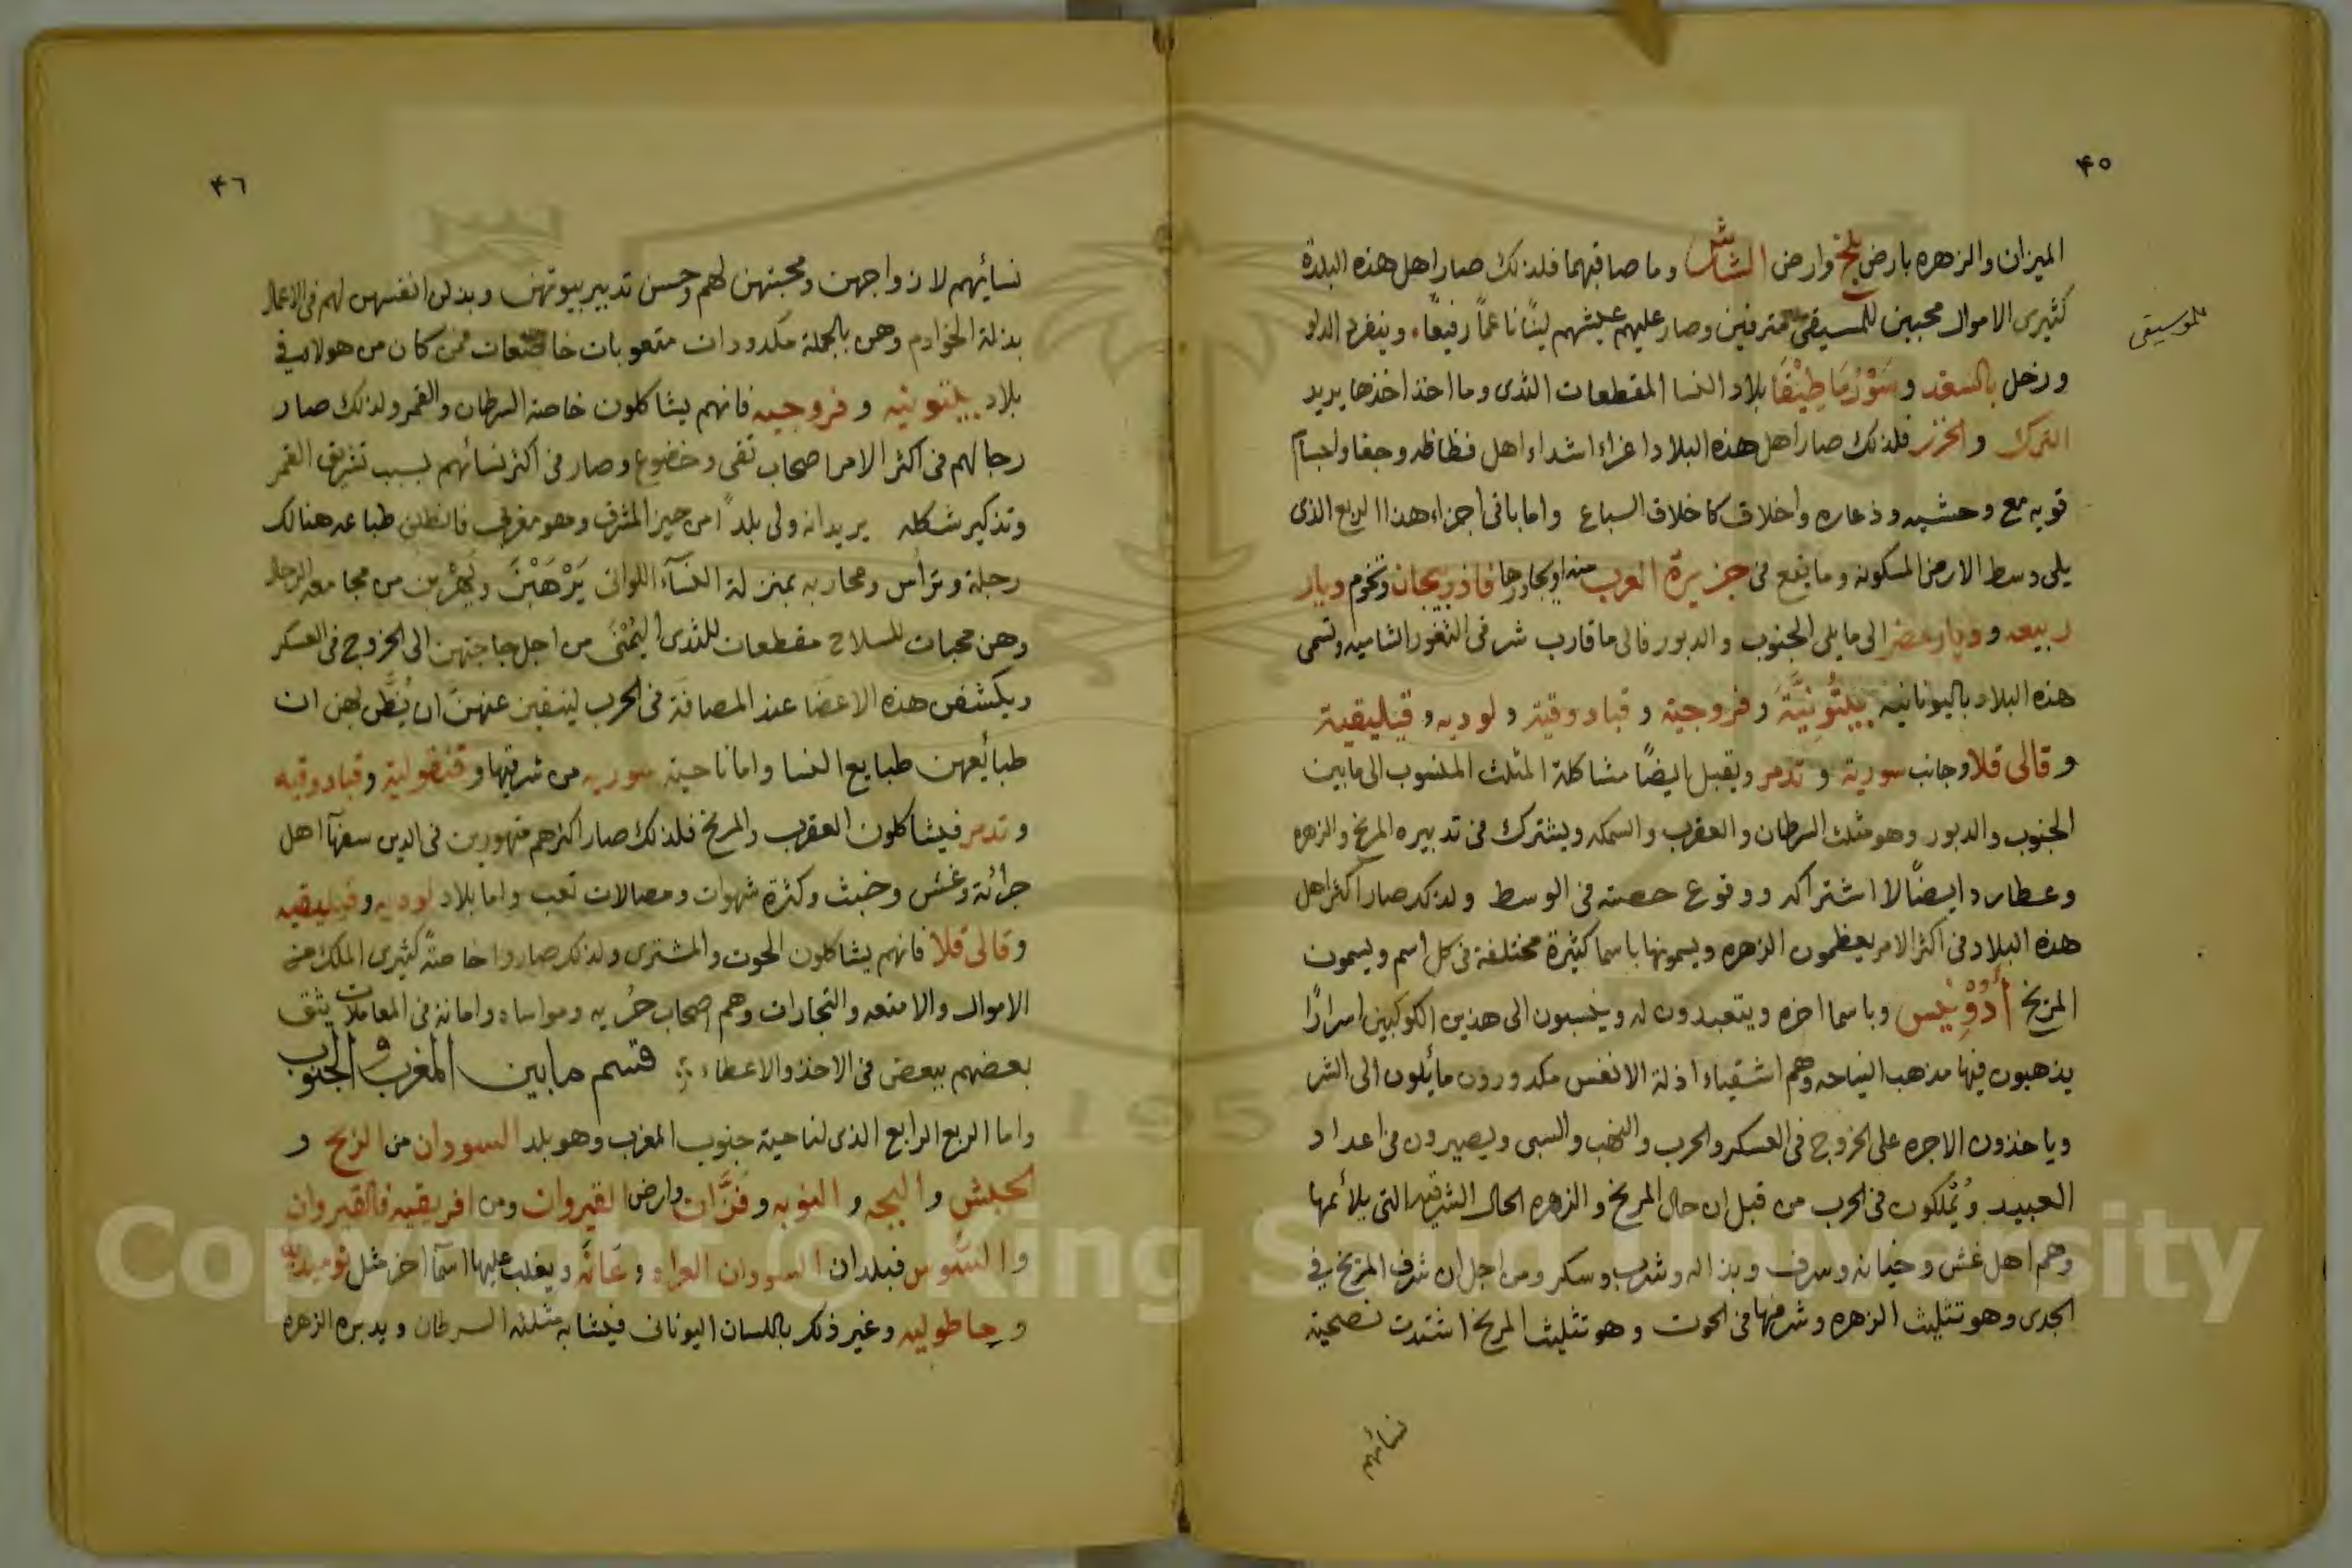 ٤٥
الميزان والزهره بارض بلخ وارض الشاش وما صاقبهما فلذلك صار اهل هذه البلدة
كثيرى الاموال محبين للمسيقى مترفين وصار عليهم عيشهم لينًا ناعمًا رفيعًا وينفرد الدلو
للموسيقى
وزحل بالسغد وسَوْرُمَاطِيْقَا بلاد النسا المقطعات الثدى وما اخذ اخذها يريد
الترك والخزر فلذلك صار اهل هذه البلاد اعزاء اشداء اهل فظاظه وجفا واجسام
قويه مع وحشيه وذعاره واخلاق كاخلاق السباع واما باقى اجزاء هذا الربع الذى
يلى وسط الارض المسكونه وما يقع فى جزيرة العرب منه اويجاورها فاذربيجان وتخوم ديار
ربيعه وديار مضر الى ما يلى الجنوب والدبور فالى ما قارب شرقى الثغور الشاميه وتسمى
هذه البلاد باليونانيه بيلتُونِيَّةَ وفروجية وقبادوقية ولوديه وقيليقية
وقالى قلا وجانب سورية وتدمر ويقبل ايضًا مشاكلة المثلث المنسوب الى مابين
الجنوب والدبور وهو مثلث السرطان والعقرب والسمكه ويشترك فى تدبيره المريخ والزهره
وعطارد ايضًا لاشتراكه ووقوع حصته فى الوسط ولذلك صار اكثر اهل
هذه البلاد فى اكثر الامر يعظمون الزهره ويسمونها باسما كثيرة مختلفة فى كل اسم ويسمون
المريخ أَدُوِنِيس وباسما اخره ويتعبدون له وينسبون الى هذين الكوكبين اسرارًا
يذهبون فيها مذهب النياحه وهم اشقياء اذلة الانفس مكدورون مائلون الى الشر
وياخذون الاجره على الخروج فى العسكر والحرب والنهب والسبى ويصيرون فى اعداد
العبيد ويُمْلكون فى الحرب من قبل ان حال المريخ والزهره الحال الشرقيه التى يلائمها
وهم اهل غش وخيانه وسرف وبذاله وشرب وسكر ومن اجل ان شرف المريخ فى
الجدى وهو تثليث الزهره وشرفها فى الحوت وهو تثليث المريخ اشتدت نصحية
نسائهم
٤٦
نسائهم لازواجهن ومحبتهن لهم وحسن تدبير بيوتهن وبذلن انفسهن لهم فى الاعمال
بذلة الخوادم وهن بالجملة مكدودات متعوبات خاضعات فمن كان من هولاء فى
بلاد بيلتونيه وفروجيه فانهم يشاكلون خاصة السرطان والقمر ولذلك صار
رجالهم فى اكثر الامر اصحاب تقى وخضوع وصار فى اكثر نسائهم بسبب تشريق القمر
وتذكير شكله يريد انه ولى بلدًا من حيز المشرق وهو مغربى فانظلق طباعه هنالك
رجلة وترأس ومحاربه بمنزلة النسآء اللواتى يَرْهَبْنَ ويهربن من مجامعه الرجال
وهن محبات للسلاح مقطعات للثدى اليُمْنَى من اجل حاجتهن الى الخروج فى العسكر
ويكشفن هذه الاعضَا عند المصافَّة فى الحرب لينفين عنهنَّ ان يُظَّن بهن ان
طبائعهن طبايع النسا واما ناحية سوريه من شرقيها وقنغولية وقبادوقيه
وتدمر فيشاكلون العقرب والمريخ فلذلك صار اكثرهم متهورين فى الدين سفهآ اهل
جرأة وغش وخبث وكثرة شهوات ومصالات تعب واما بلاد لوديه وقيليقيه
وقالى قلا فانهم يشاكلون الحوت والمشترى ولذلك صاروا خاصةً كثيرى الملك من
الاموال والامتعه والتجارات وهم اصحاب حُريه ومواساه وامانة فى المعاملات يثق
بعضهم ببعض فى الاخذ والاعطاء قسم مابين المغرب والجنوب
واما الربع الرابع الذى لناحية جنوب المغرب وهو بلد السودان من الزنج و
الحبش والبجه والنوبه وفَزَّان وارض القيروان ومن افريقيه فالقيروان
والسُّوس فبلدان السودان العراه وغَانَه ويغلب عليها اسمآ اخر مثل نوميديه
وجاطوليه وغير ذلك باللسان اليونانى فيشابه مثلثه السرطان ويدبره الزهره
Copyright © King Saud University
1957